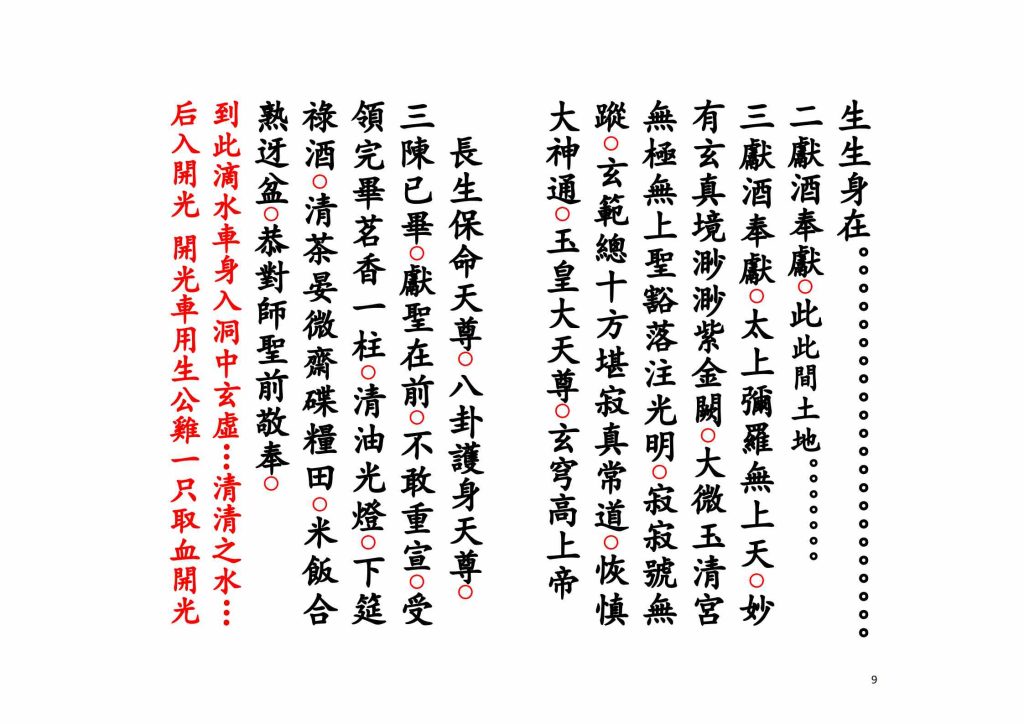 生生身在。。。。。。。。。。。。。。。。。。
二獻酒奉獻○此此間土地。。。。。。
三獻酒奉獻○太上彌羅無上天○妙
有玄真境渺渺紫金闕○大微玉清宮
無極無上聖豁落注光明○寂寂號無
蹤○玄範總十方堪寂真常道○恢慎
大神通○玉皇大天尊○玄穹高上帝
長生保命天尊○八卦護身天尊○
三陳已畢○獻聖在前○不敢重宣○受
領完畢茗香一柱○清油光燈○下筵
祿酒○清茶晏微齋碟糧田○米飯合
熟迓盆○恭對師聖前敬奉○
到此滴水車身入洞中玄虛…清清之水…
后入開光 開光車用生公雞一只取血開光
9